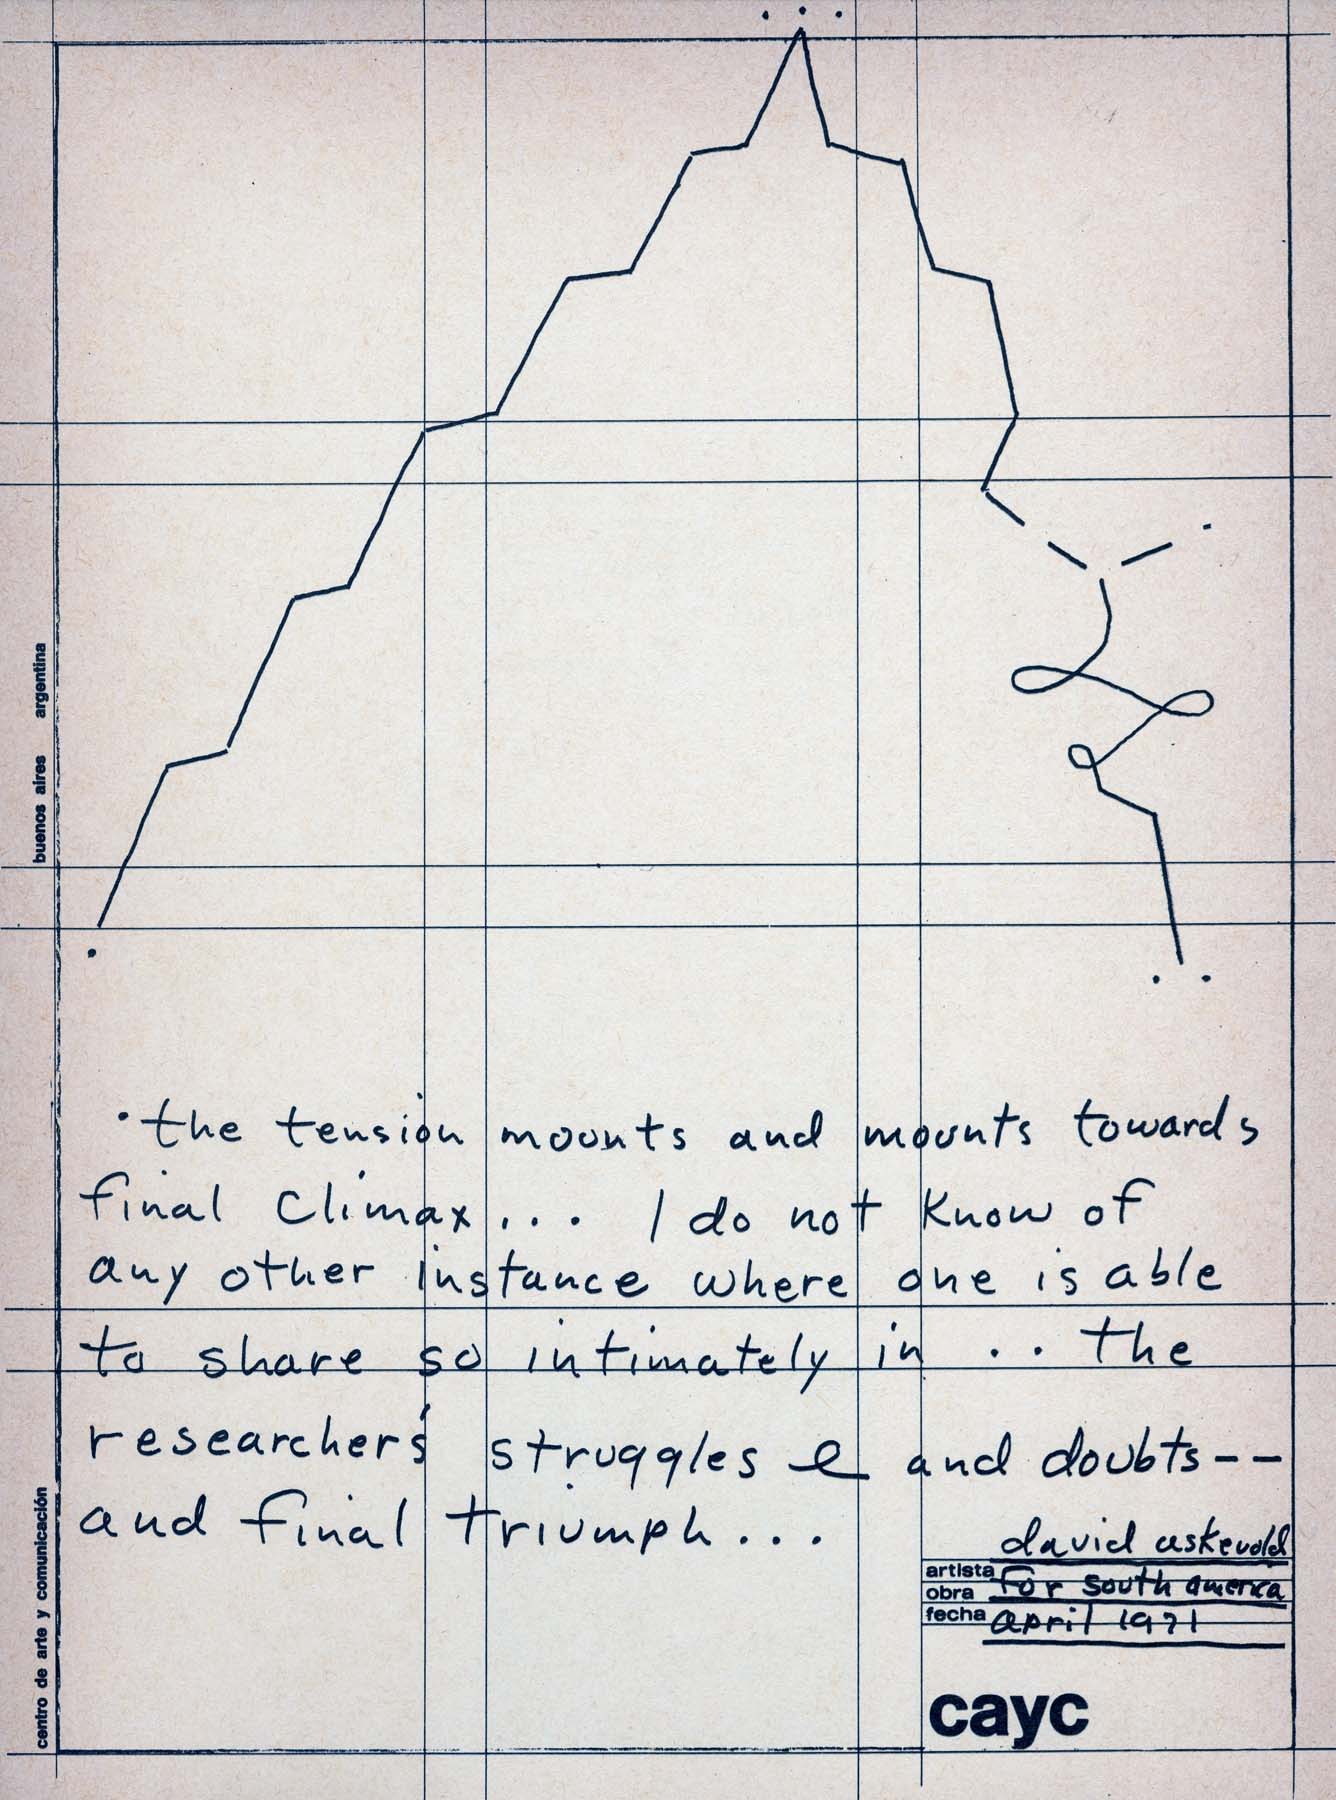 buenos aires argentina
centro de arte y comunicación
·the tension mounts and mounts towards
final climax... I do not know of
any other instance where one is able
to share so intimately in .. the
researcher's struggles and doubts--
and final triumph...
david askevold
artista
obra for south america
fecha april 1971
cayc